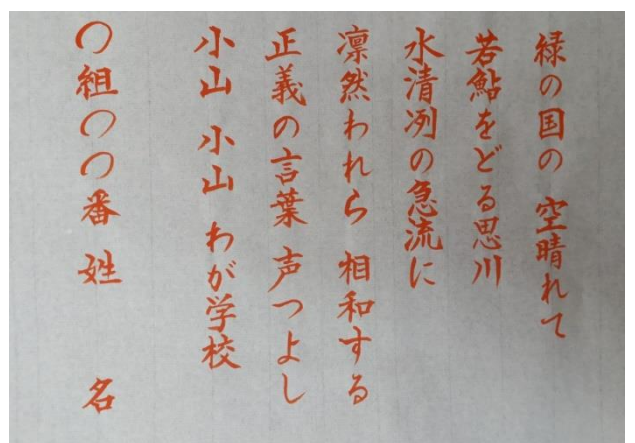 緑の国の 空晴れて
若鮎をどる思川
水清冽の急流に
凛然われら 相和する
正義の言葉 声つよし
小山 小山 わが学校
〇組〇〇番 姓 名